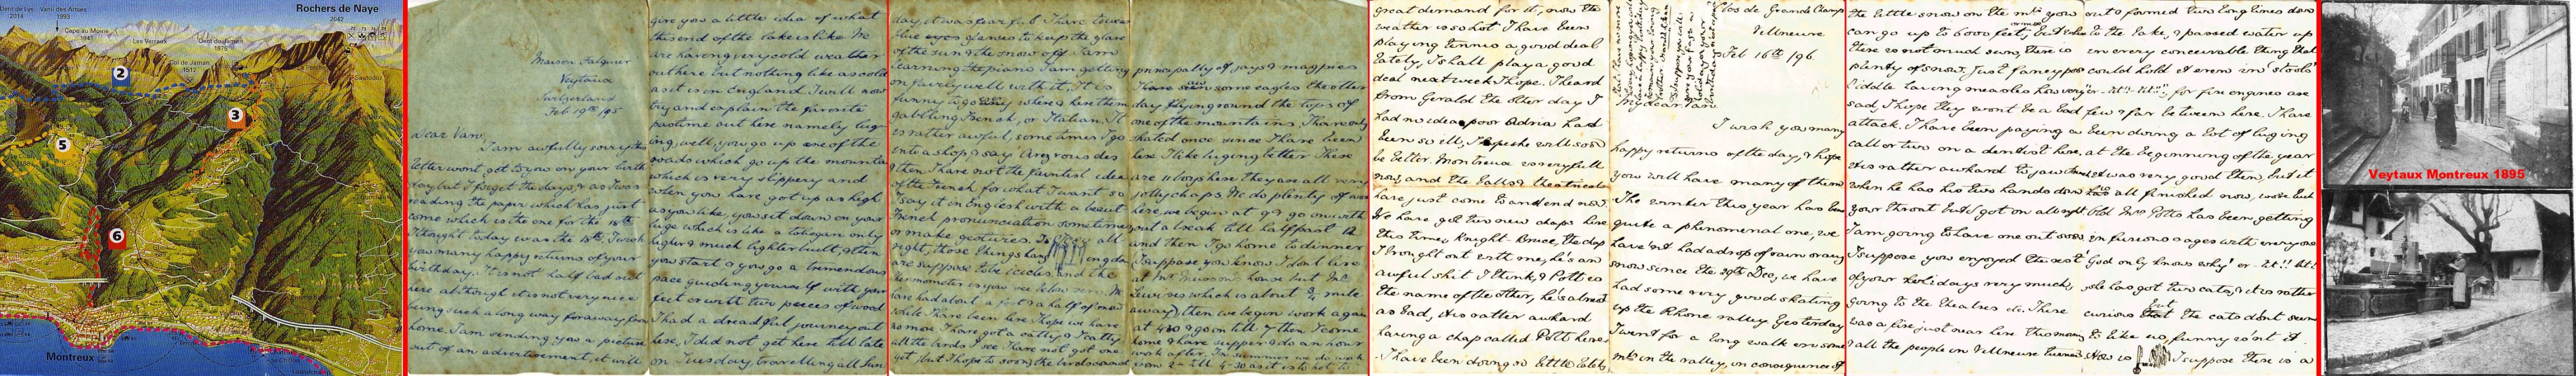 Dent de Lys
2014
Vanil des Artses
1993
Rochers de Naye
2042
Cape au Moine
1941
Les Verraux
Dent de Jaman
1875
Col de Jaman
1512
2
3
5
6
Montreux
Maison Falquier
Veytaux
Switzerland
Feb 19th 95
Dear Vaw,
I am awfully sorry this
letter wont get to you on your birth
day but I forget the days, & as I was
reading the paper which has just
come which is the one for the 18th
I thought today was the 18th. I wish
you many happy returns of your
birthday. It is not half bad out
here although it is not very nice
being such a long way far away from
home. I am sending you a picture
out of an advertisement, it will
give you a little idea of what
this end of the lake is like. We
are having very cold weather
out here but nothing like as cold
as it is in England. I will now
try and explain the favorite
pastime out here namely lug-
ing, well, you go up one of the
roads which go up the mountain
which is very slippery and
when you have got up as high
as you like, you sit down on your
luge which is like a tobogan only
higher & much lighter built, & then
you start & you go a tremendous
pace guiding yourself with your
feet or with two pieces of wood
I had a dreadful journey out
here, I did not get here till late
on Tuesday, travelling all Sun
day, it was fearful. I have to wear
blue eyes glasses to keep the glare
of the sun & the snow off. I am
learning the piano I am getting
on fairly well with it. It is
funny to go where & hear them
gabbling French, or Italian. It
is rather awful, some times I go
into a shop & say Avez vous des
& then I have not the faintest idea
of the French for what I want so
I say it in English with a beaut
French pronunciation sometimes
or make gestures. Is all
right, those things hanging do
are suppose to be icicles and the
thermometer is you see below zero. We
have had about a foot & a half of snow
while I have been here. I hope we have
no more. I have got a catty & I catty
all the birds I see I have not got one
yet, but I hope to soon, the birds consist
principally of jays & magpies
I have seen some eagles the other
day flying round the tops of
one of the mountains. I have only
skated once since I have been
here I like luging better. There
are 11 boys here they are all very
jolly chaps. We do plenty of work
here, we begin at 9 & go on with
out a break till half past 12
and then I go home to dinner
I suppose you know I don't live
at Mr house but Mr
Lewises which is about 3/4 mile
away, then we begin work again
at 4-30 & go on till 7 then I come
home & have supper & do an hour
work after. In summer we do work
from 2 - till 4-30 as it is to hot to
great demand for it, now the
weather is so hot I have been
playing tennis a good deal
lately, I shall play a good
deal next week I hope. I heard
from Gerald the other day I
had no idea poor Adria had
been so ill, I hope she will soon
be better. Montreux is very full
now, and the balls & theatricals
have just come to an end now.
We have got two new chaps here
this time, Knight-Bruce, the chap
I brought out with me, he's an
awful shit I think, & Pott is
the name of the other, he's almost
as bad, it is rather awkward
having a chap called Pott here
I have been doing so little lately
Clos de Grande Champ
Villneuve
Feb 16th /96
My dear Vaw
I wish you many
happy returns of the day, & hope
you will have many of them
The winter this year has been
quite a phenomenal one, we
have'nt had a drop of rain or any
snow since the 29th Dec, we have
had some very good skating
up the Rhone valley. Yesterday
I went for a long walk on some
mts in the valley, in consequence of
the little snow on the mts you
can go up to 6000 feet, but when
there is not much sun, there is
plenty of snow. Just fancy poor
Liddle having measles how very
sad, I hope they wont be a bad
attack. I have been paying a
call or two on a dentist here.
It is rather awkard to jaw
when he has his two hands down
your throat but I got on allright
I am going to have one out soon
I suppose you enjoyed the rest
of your holidays very much,
going to the theatres etc. There
was a fire just near here this morn
& all the people in Villneuve turned
out & formed two long lines down
to the lake, & passed water up
in every conceivable thing that
could hold it even in 'stools'
er-tit!!-tit!!, for fire engines are
few & far between here. I have
been doing a lot of luging
at the beginning of the year
it was very good then, but it
has all finished now, worse luck
Old Mrs Gotto has been getting
in furious rages with everyone
God only knows why! er - tit!! tit!
she has got two cats, & it is rather
curious but the cats dont seem
to like us, funny is'nt it.
How is I suppose there is a
Veytaux Montreux 1895